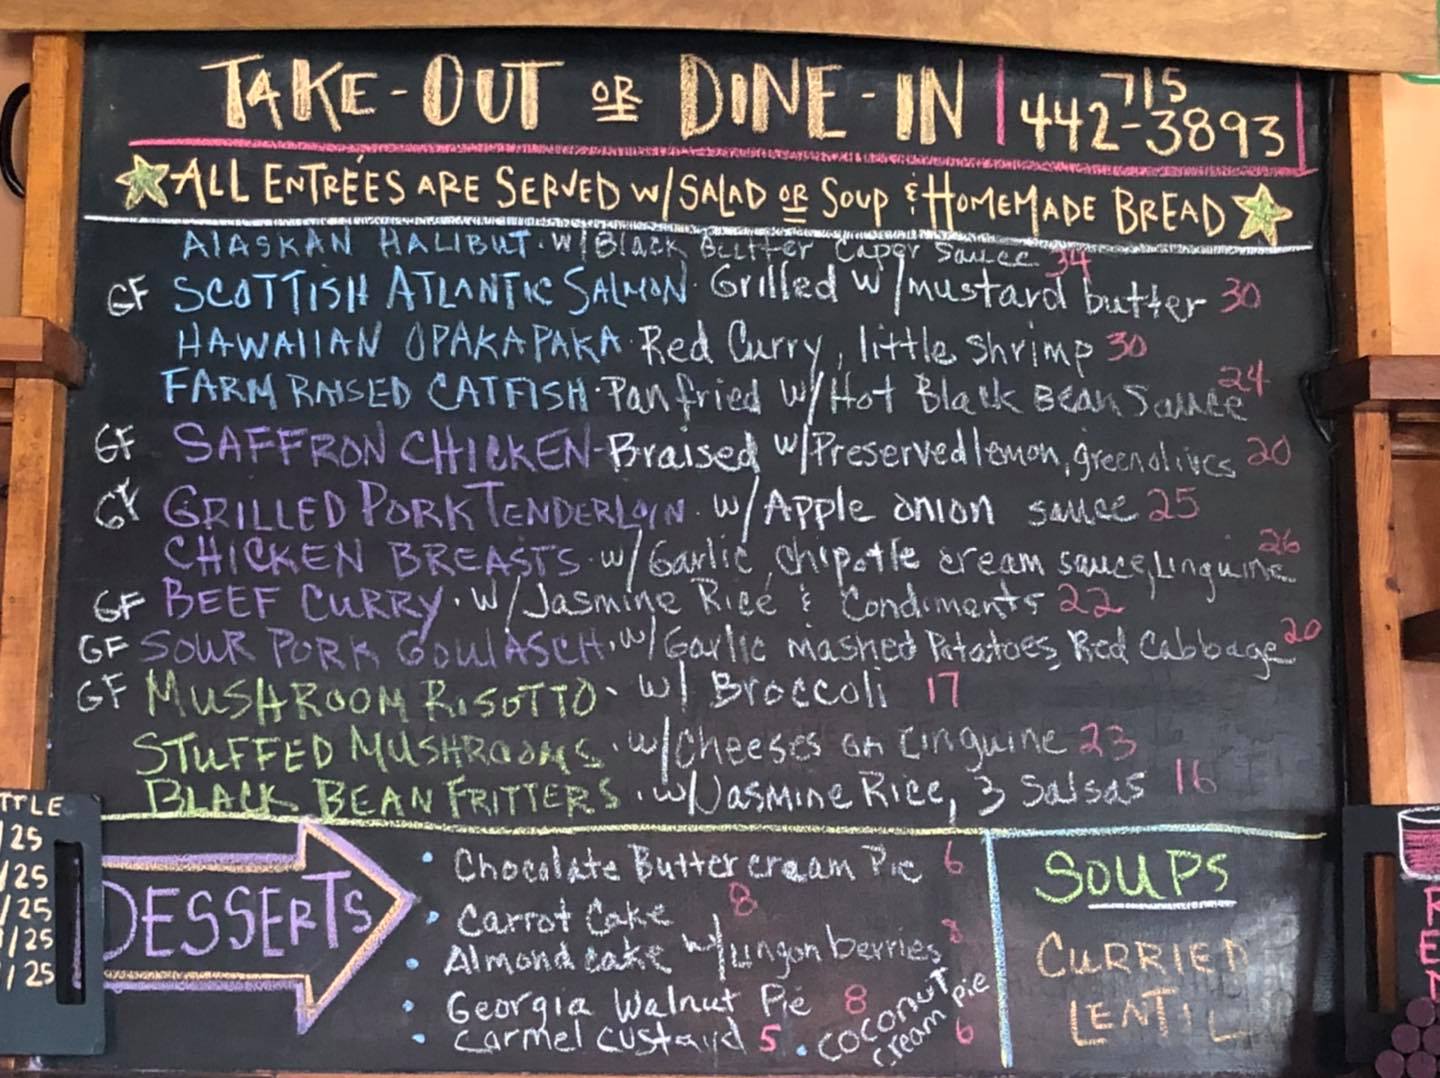 TAKE-OUT OR DINE-IN
715
442-3893
ALL ENTRÉES ARE SERVED W/SALAD OR SOUP & HOMEMADE BREAD
ALASKAN HALIBUT · w/Black Butter Caper sauce 34
GF SCOTTISH ATLANTIC SALMON · Grilled w/mustard butter 30
HAWAIIAN OPAKAPAKA · Red Curry, little shrimp 30
FARM RAISED CATFISH · Pan fried w/Hot Black Bean Sauce 24
GF SAFFRON CHICKEN - Braised w/Preserved lemon, green olives 20
GF GRILLED PORK TENDERLOIN · w/Apple onion sauce 25
CHICKEN BREASTS · w/Garlic, chipotle cream sauce, Linguine 26
GF BEEF CURRY · w/Jasmine Rice & Condiments 22
GF SOUR PORK GOULASCH · w/Garlic mashed Potatoes, Red Cabbage 20
GF MUSHROOM RISOTTO · w/ Broccoli 17
STUFFED MUSHROOMS · w/Cheeses on Linguine 23
BLACK BEAN FRITTERS · w/Jasmine Rice, 3 Salsas 16
DESSERTS
· Chocolate Buttercream Pie 6
· Carrot Cake 8
· Almond cake w/lingonberries 8
· Georgia Walnut Pie 8
· Carmel custard 5
· coconut cream pie 6
SOUPS
CURRIED
LENTIL
TTLE
/25
/25
/25
/25
/25
R
E